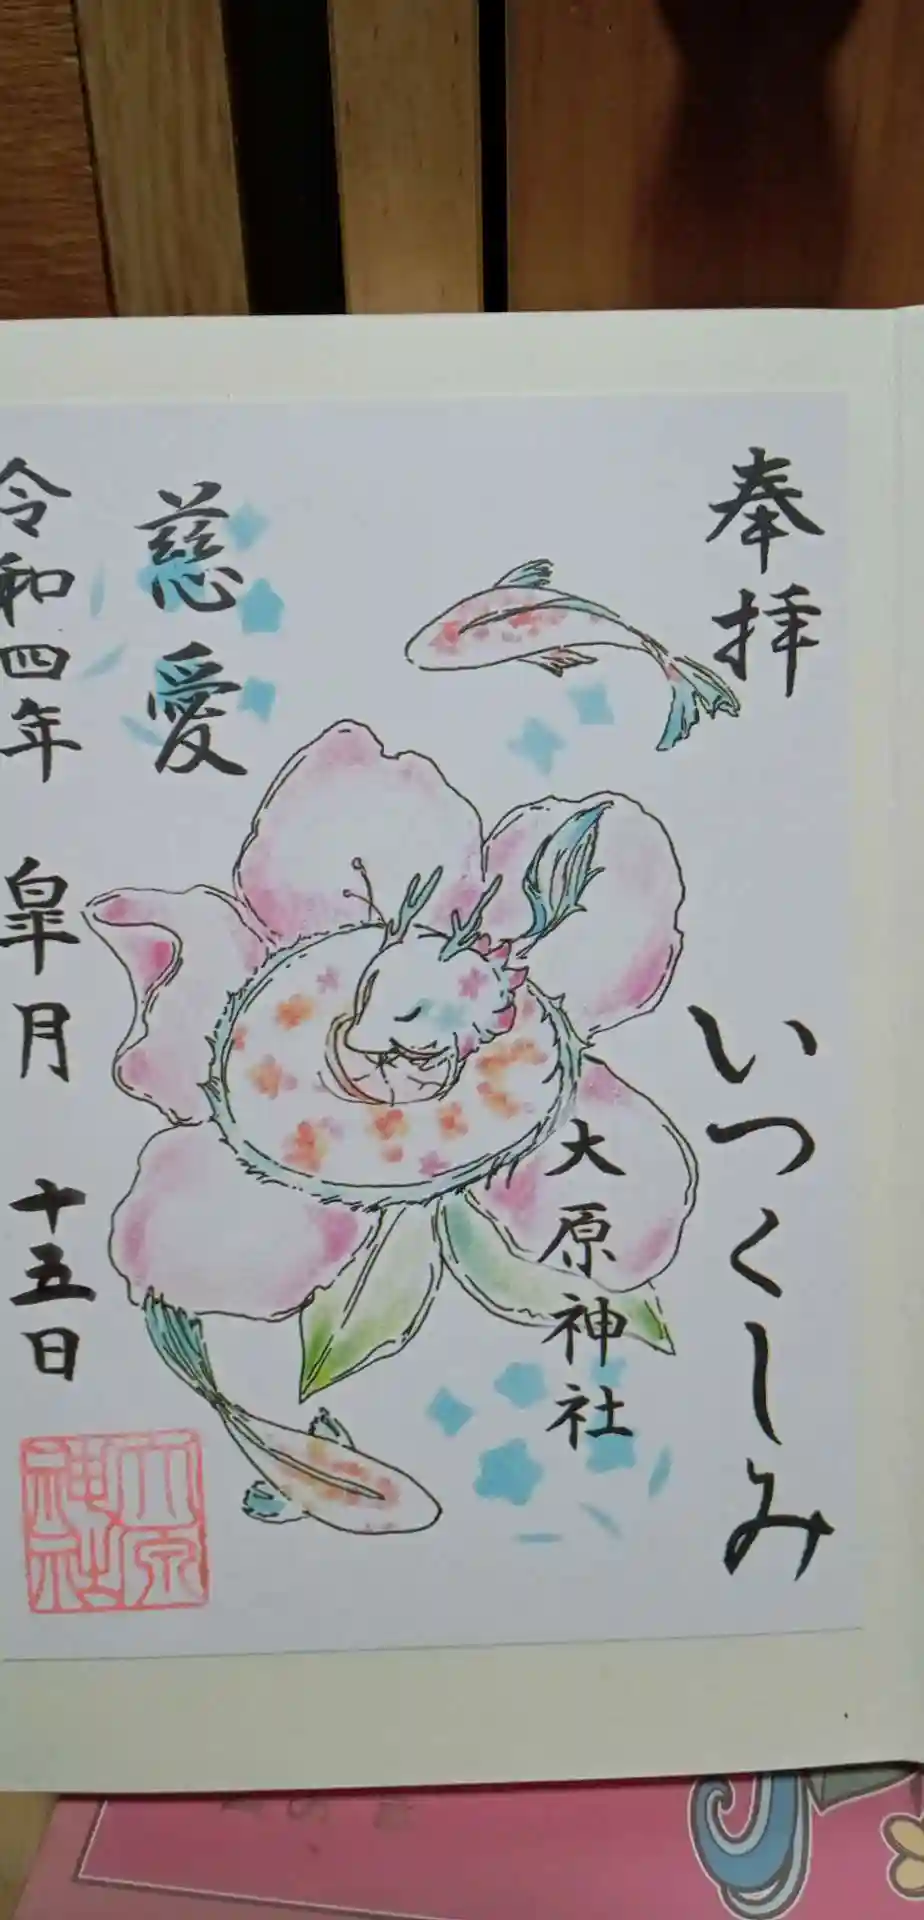 奉拝
いつくしみ
大原神社
慈愛
令和四年 皐月 十五日
大原
神社